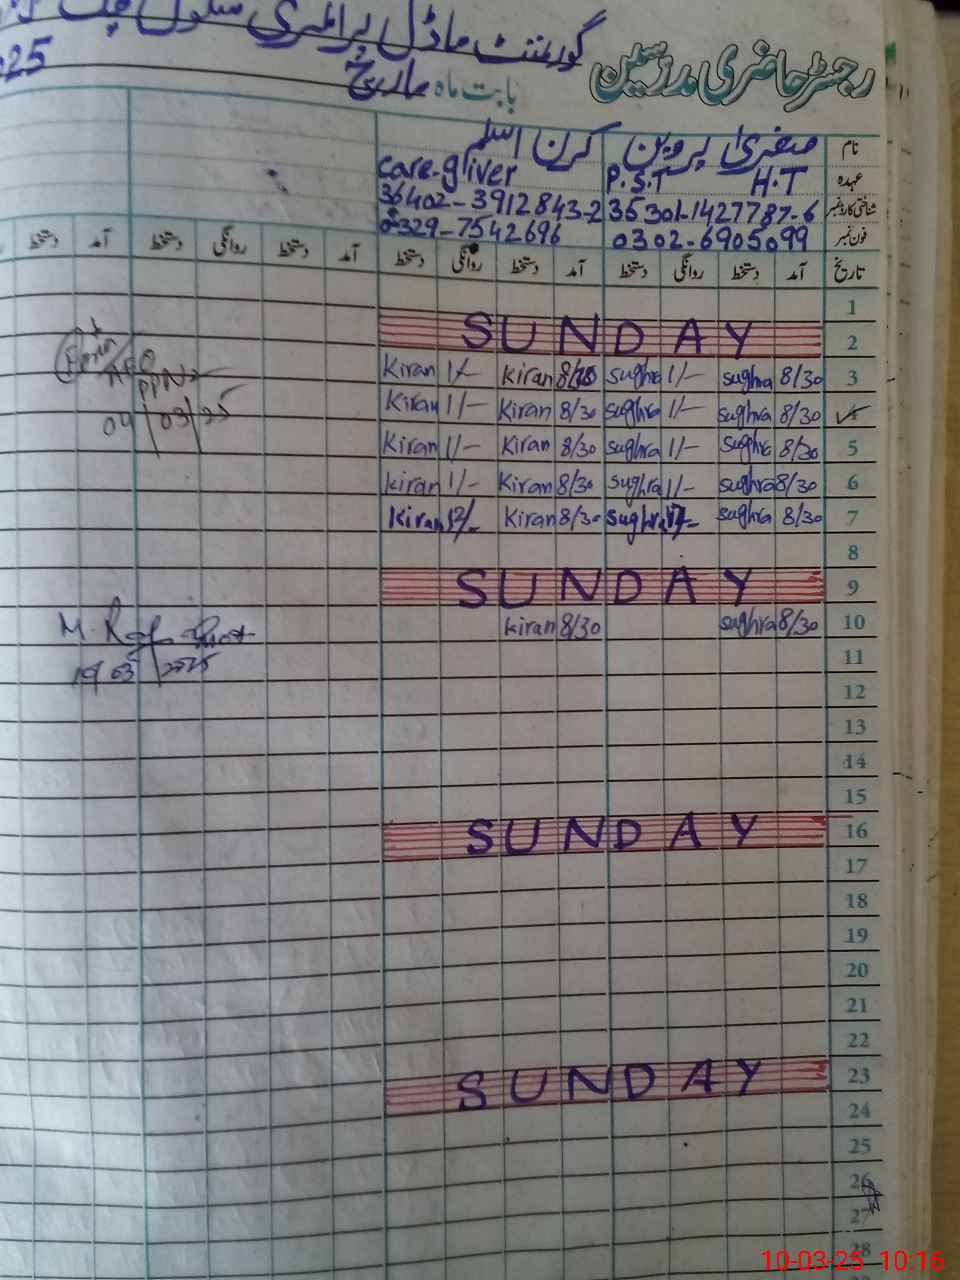 رجسٹر حاضری مدرسین
گورنمنٹ ماڈل پرائمری سکول چک
بابت ماہ مارچ
25
نام صغریٰ پروین کرن اسلم
عہدہ H.T P.S.T care-giver
شناختی کارڈ نمبر 35301-1427787-6 36402-3912843-2
فون نمبر 0302-6905099 0329-7542696
تاریخ آمد دستخط روانگی دستخط آمد دستخط روانگی دستخط آمد دستخط روانگی دستخط آمد دستخط
1
SUNDAY 2
Kiran 1/- Kiran 8/30 sughra 1/- sughra 8/30 3
Kiran 1/- Kiran 8/30 sughra 1/- sughra 8/30
Kiran 1/- Kiran 8/30 sughra 1/- sughra 8/30 5
Kiran 1/- Kiran 8/30 sughra 1/- sughra 8/30 6
Kiran 12/- Kiran 8/30 sughra 12/- sughra 8/30 7
AEO
04/03/25
8
SUNDAY 9
kiran 8/30 sughra 8/30 10
M.
10/03/2025
11
12
13
14
15
SUNDAY 16
17
18
19
20
21
22
SUNDAY 23
24
25
26
27
28
10-03-25 10:16